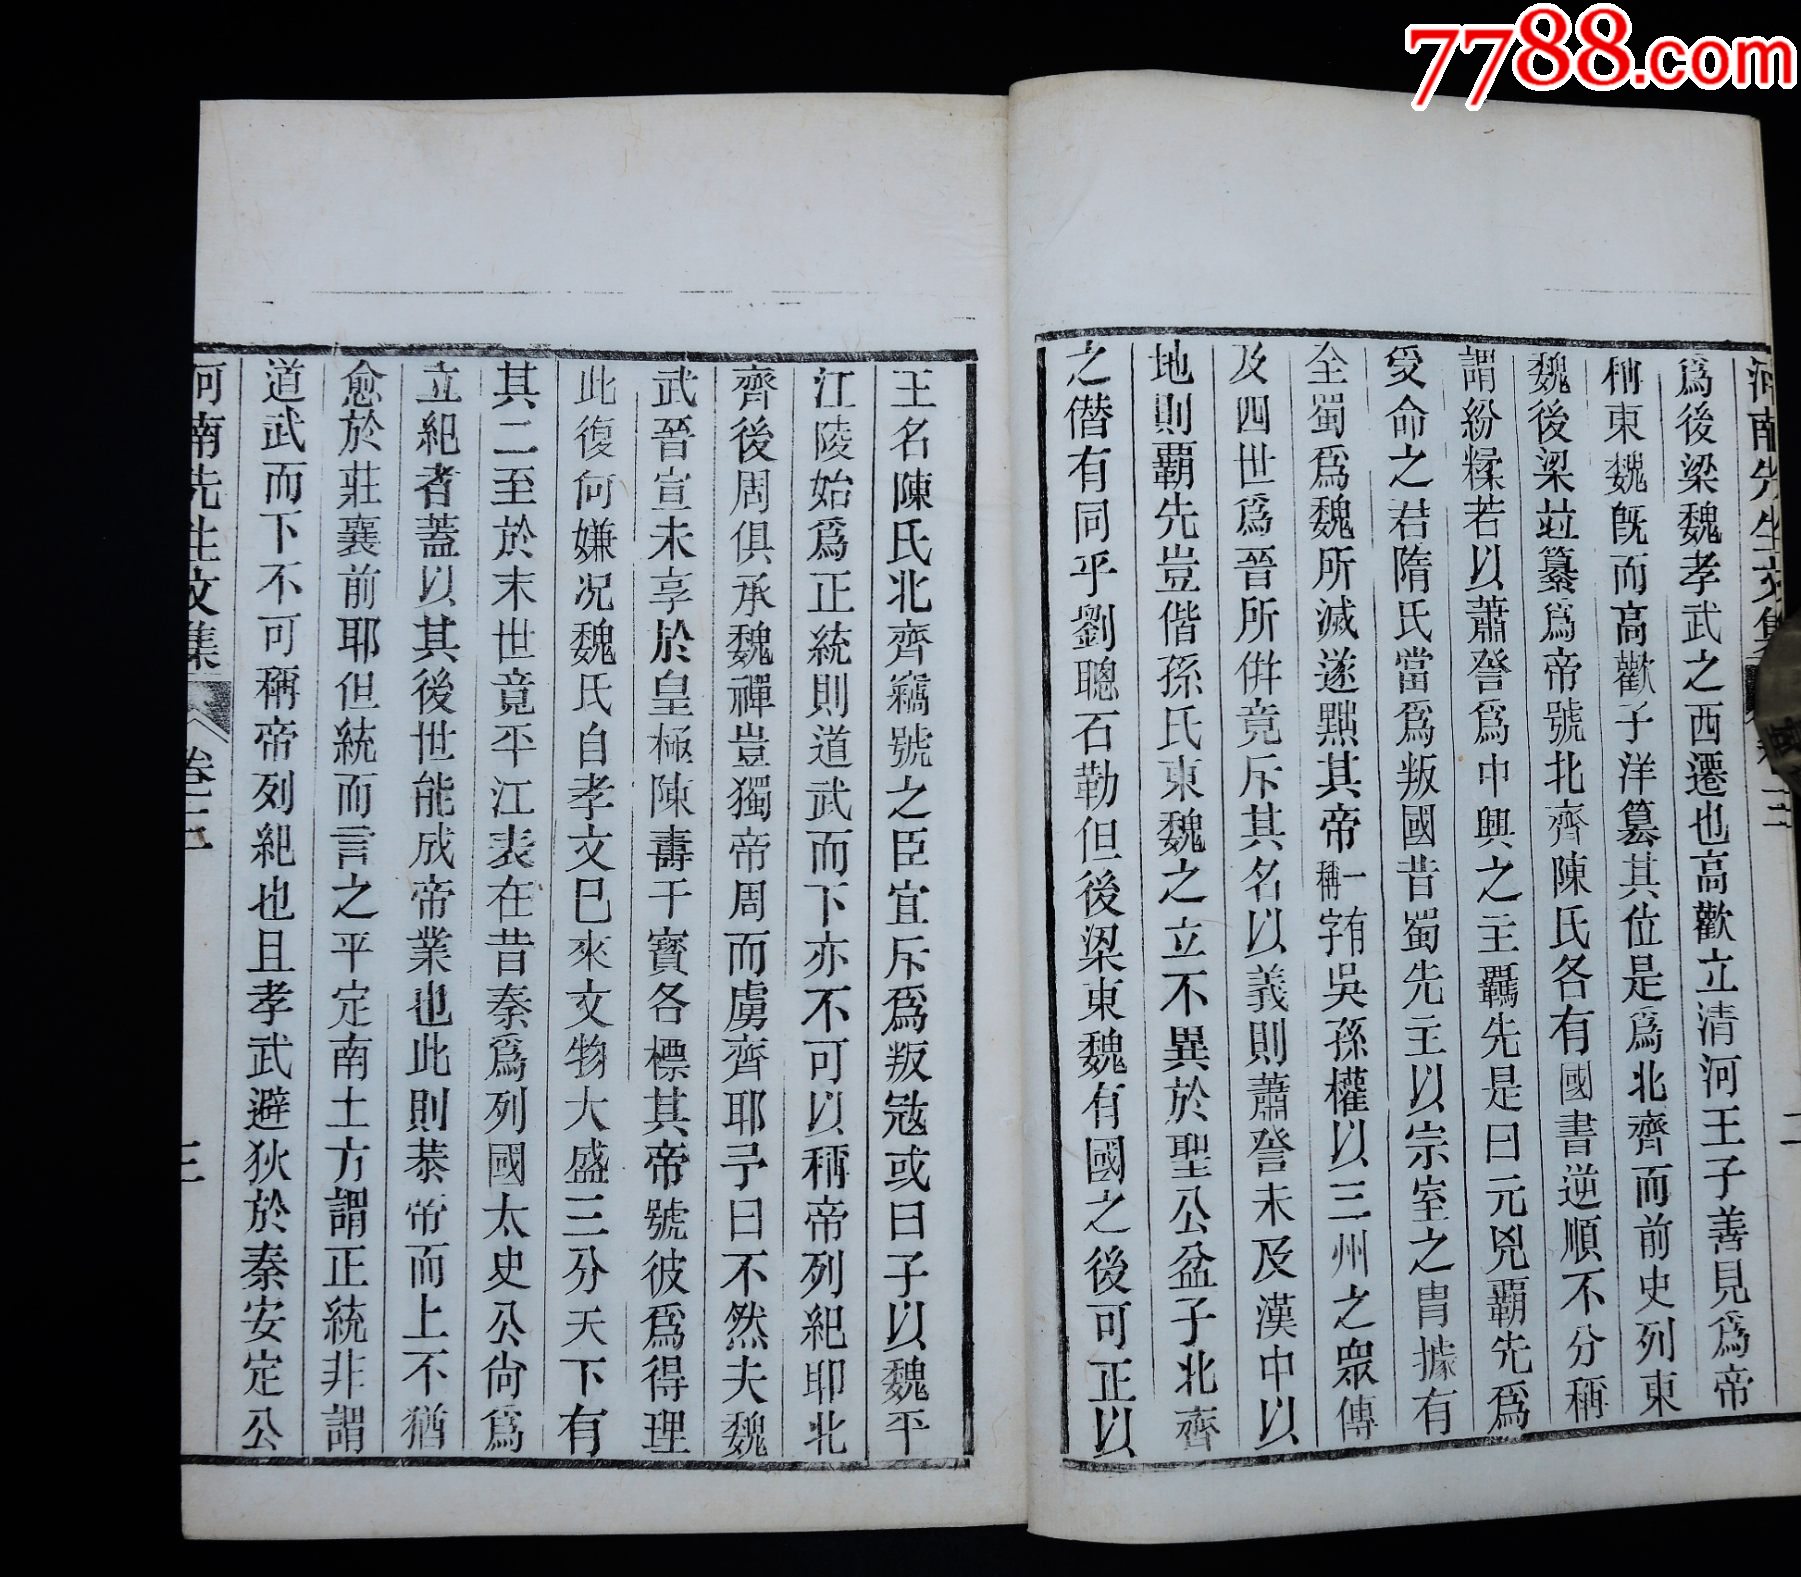 7788.com
河南先生文集 卷三 二
爲後梁魏孝武之西遷也高歡立清河王子善見爲帝
稱東魏旣而高歡子洋篡其位是爲北齊而前史列東
魏後梁竝纂爲帝號北齊陳氏各有國書逆順不分稱
謂紛糅若以蕭詧爲中興之主霸先是曰元兇霸先爲
受命之君隋氏當爲叛國昔蜀先主以宗室之胄據有
全蜀爲魏所滅遂黜其帝一有稱字吳孫權以三州之眾傳
及四世爲晉所併竟斥其名以義則蕭詧未及漢中以
地則霸先豈偕孫氏東魏之立不異於聖公盆子北齊
之僭有同乎劉聰石勒但後梁東魏有國之後可正以
王名陳氏北齊竊號之臣宜斥爲叛寇或曰子以魏平
江陵始爲正統則道武而下亦不可以稱帝列紀耶北
齊後周俱承魏禪豈獨帝周而虜齊耶予曰不然夫魏
武晉宣未享於皇極陳壽干寶各標其帝號彼爲得理
此復何嫌况魏氏自孝文已來文物大盛三分天下有
其二至於末世竟平江表在昔秦爲列國太史公尙爲
立紀者蓋以其後世能成帝業也此則恭帝而上不猶
愈於莊襄前耶但統而言之平定南土方謂正統非謂
道武而下不可稱帝列紀也且孝武避狄於秦安定公
河南先生文集 卷三 三